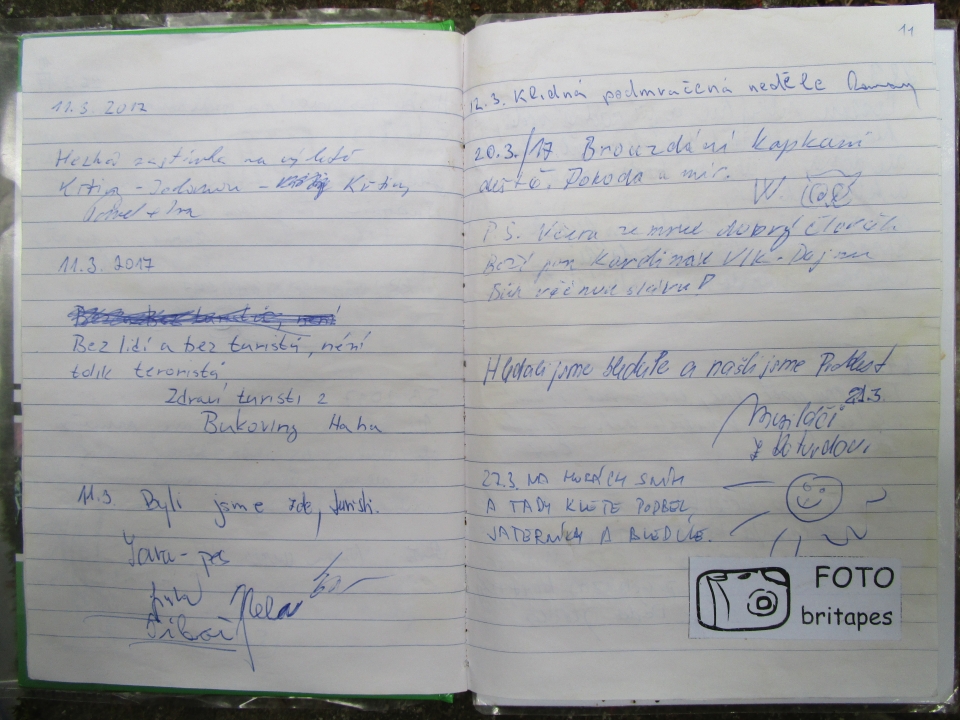 11.3. 2017
Hezká zastávka na výletě
Křtiny - - Křtiny
11.3. 2017
Bez lidí a bez turistů, není
tolik teroristů
Zdraví turisti z
Bukoviny Haha
11.3. Byli jsme zde, turisti.
Jara - pes
11
12.3. Klidná podmračená neděle
20.3./17 Brouzdání kapkami
deště. Pohoda a mír.
W.
P.S. Včera zemřel dobrý člověk
Boží pan Kardinál Vlk. Dej mu
Bůh věčnou slávu!
Hledali jsme bledule a našli jsme
21.3.
z
22.3. NA HORÁCH SNÍH
A TADY KVETE PODBĚL,
JATERNÍKY A BLEDULE.
FOTO
britapes